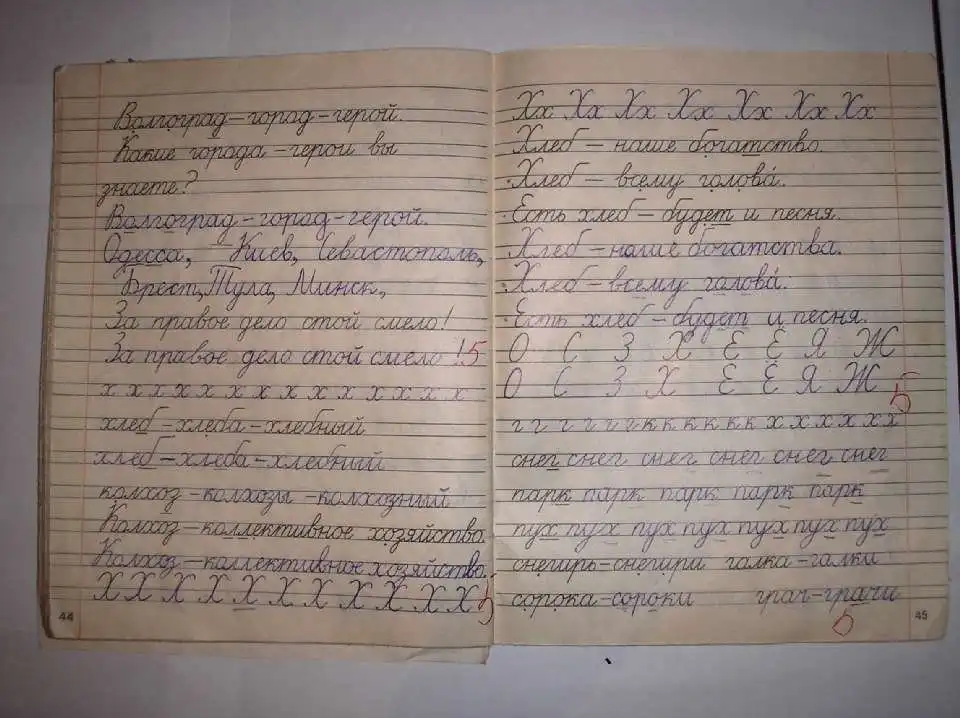 Волгоград – город – герой.
Какие города – герои вы
знаете?
Волгоград – город – герой.
Одесса, Киев, Севастополь,
Брест, Тула, Минск,
За правое дело стой смело!
За правое дело стой смело! 5
х х х х х х х х х х х х х х х
хлеб – хлеба – хлебный
хлеб – хлеба – хлебный
колхоз – колхозы – колхозный
Колхоз – коллективное хозяйство.
Колхоз – коллективное хозяйство.
Х Х Х Х Х Х Х Х Х Х Х 5
44
Хх Хх Хх Хх Хх Хх Хх
Хлеб – наше богатство.
Хлеб – всему голова́.
Есть хлеб – будет и песня.
Хлеб – наше богатства.
Хлеб – всему галова́.
Есть хлеб – будет и песня.
О С З Х Е Ё Я Ж
О С З Х Е Ё Я Ж 5
г г г г г г к к к к к х х х х х х
снег снег снег снег снег снег
парк парк парк парк парк
пух пух пух пух пух пух пух
снегирь – снегири галка – галки
сорока – сороки грач – грачи
5
45